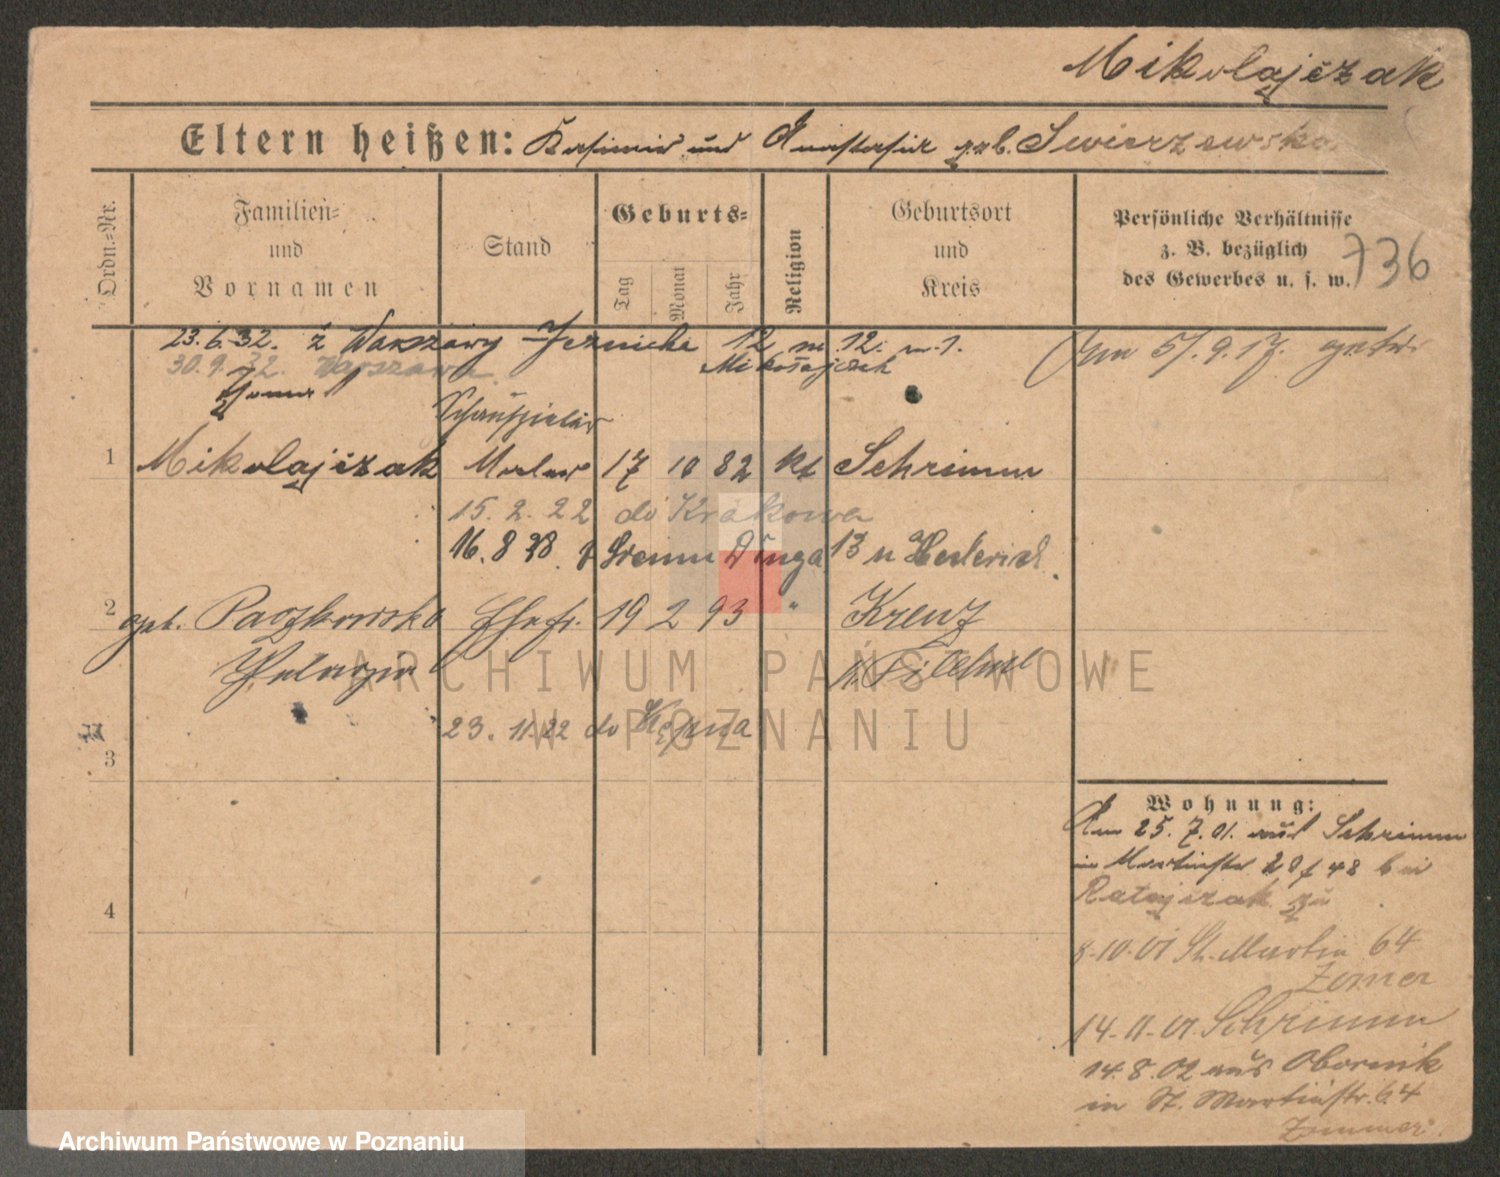 Mikolajczak
Eltern heißen: Kasimir und Anastasia geb. Swierzewska
Ordn.=Nr.
Familien= und Vornamen
Stand
Geburts=
Tag
Monat
Jahr
Religion
Geburtsort und Kreis
Persönliche Verhältnisse z. B. bezüglich des Gewerbes u. s. w.
736
23.6.32. z Warszawy Jeznicka 12 m 12. u. J.
Mikołajczak
Am 5/.9.17. getr.
30.9.32. Warszawa
Schauspieler
1 Mikolajczak Maler 17 10 82 kt Schrimm
15.2.22 do Krakowa
16.8 28. z Sremu Długa 13 u
2 geb. Paczkowska Ehefr. 19 2 93 " Kreuz
Pelagia
23.11.22 do Kępna
3
4
Wohnung:
Am 25.7.01. aus Schrimm
in Martinstr 28 f 48 bei
Ratajczak zu
8.10.01 St. Martin 64
Zomer
14.11.01. Schrimm
14.8.02 aus Obornik
in St. Martinstr. 64
Zommer.
ARCHIWUM PAŃSTWOWE
W POZNANIU
Archiwum Państwowe w Poznaniu